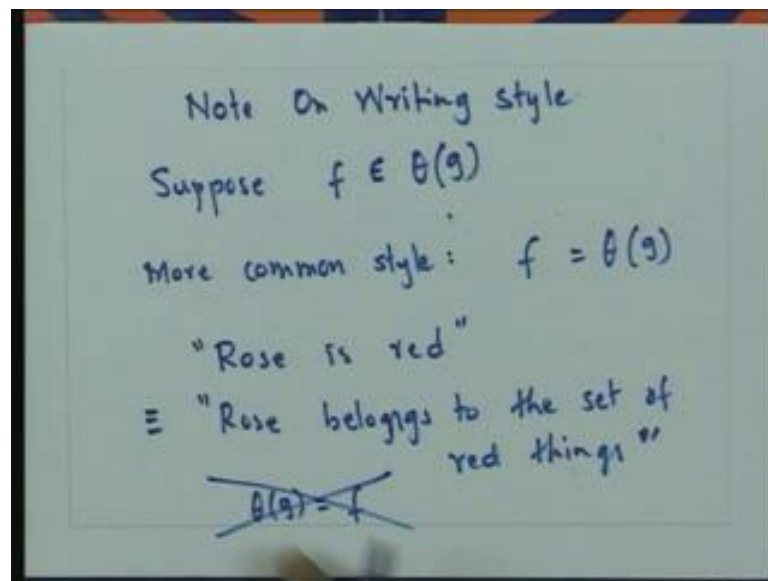 Note On Writing style
Suppose f ∈ θ(g)
More common style: f = θ(g)
"Rose is red"
≡ "Rose belogngs to the set of
red things"
θ(g) = f